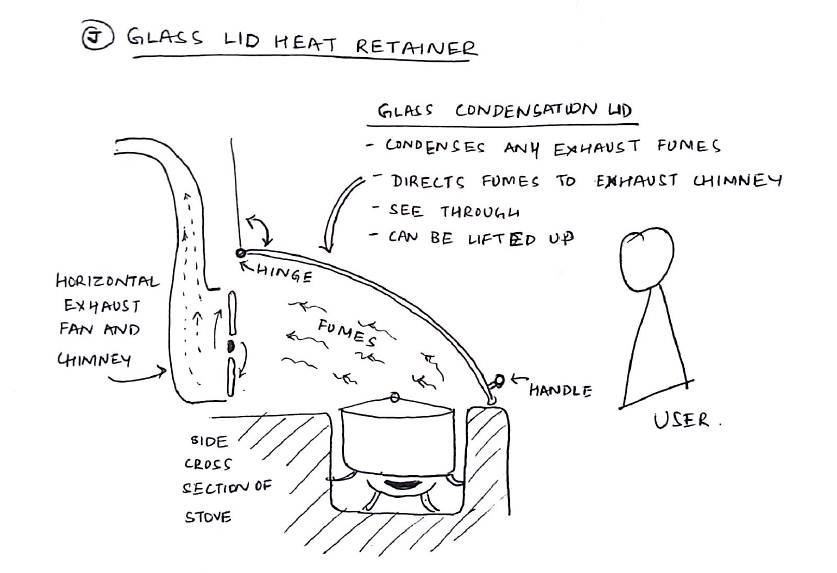 J GLASS LID HEAT RETAINER
GLASS CONDENSATION LID
- CONDENSES ANY EXHAUST FUMES
- DIRECTS FUMES TO EXHAUST CHIMNEY
- SEE THROUGH
- CAN BE LIFTED UP
HINGE
HORIZONTAL
EXHAUST
FAN AND
CHIMNEY
FUMES
HANDLE
USER.
SIDE
CROSS
SECTION OF
STOVE